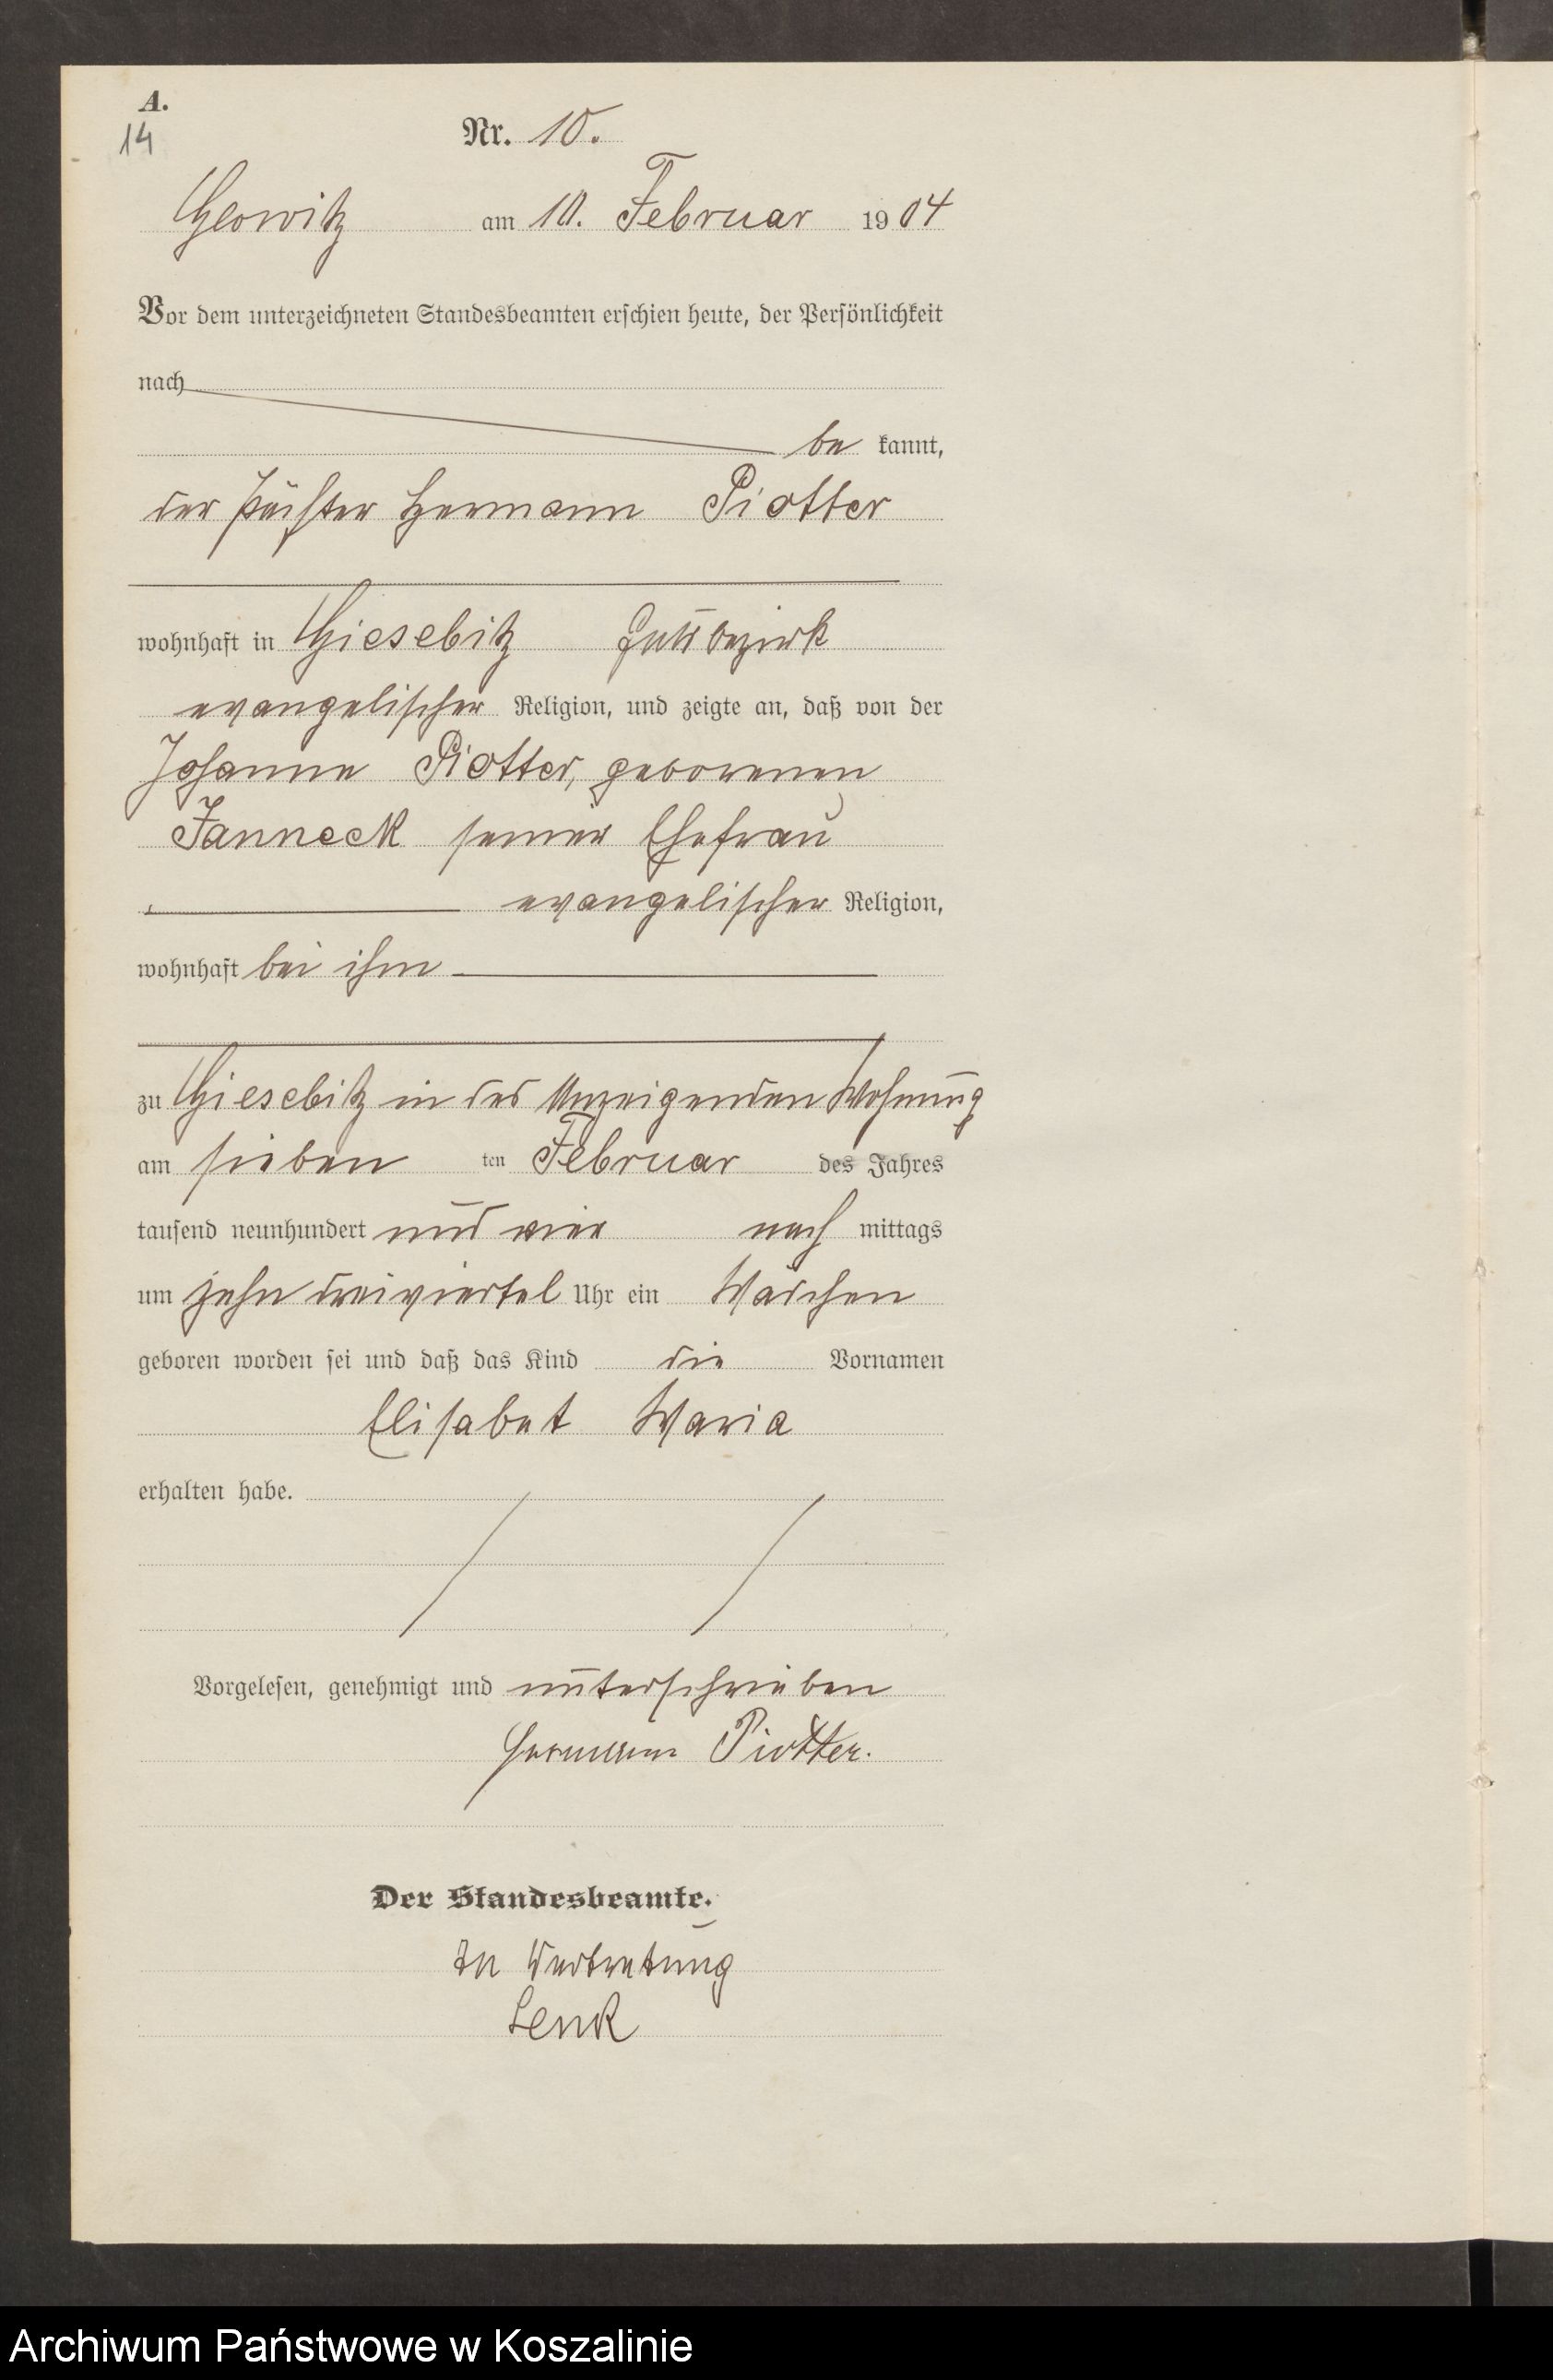 A.
14
Nr. 10.
Glowitz am 10. Februar 1904
Vor dem unterzeichneten Standesbeamten erschien heute, der Persönlichkeit
nach
be kannt,
der Pächter Hermann Piotter
wohnhaft in Giesebitz Gutsbezirk
evangelischer Religion, und zeigte an, daß von der
Johanne Piotter, geborenen
Janneck seiner Ehefrau
evangelischer Religion,
wohnhaft bei ihm
zu Giesebitz in des Anzeigenden Wohnung
am sieben ten Februar des Jahres
tausend neunhundert und vier nach mittags
um zehn dreiviertel Uhr ein Mädchen
geboren worden sei und daß das Kind die Vornamen
Elisabet Maria
erhalten habe.
Vorgelesen, genehmigt und unterschrieben
Hermann Piotter.
Der Standesbeamte.
In Vertretung
Lenk
Archiwum Państwowe w Koszalinie